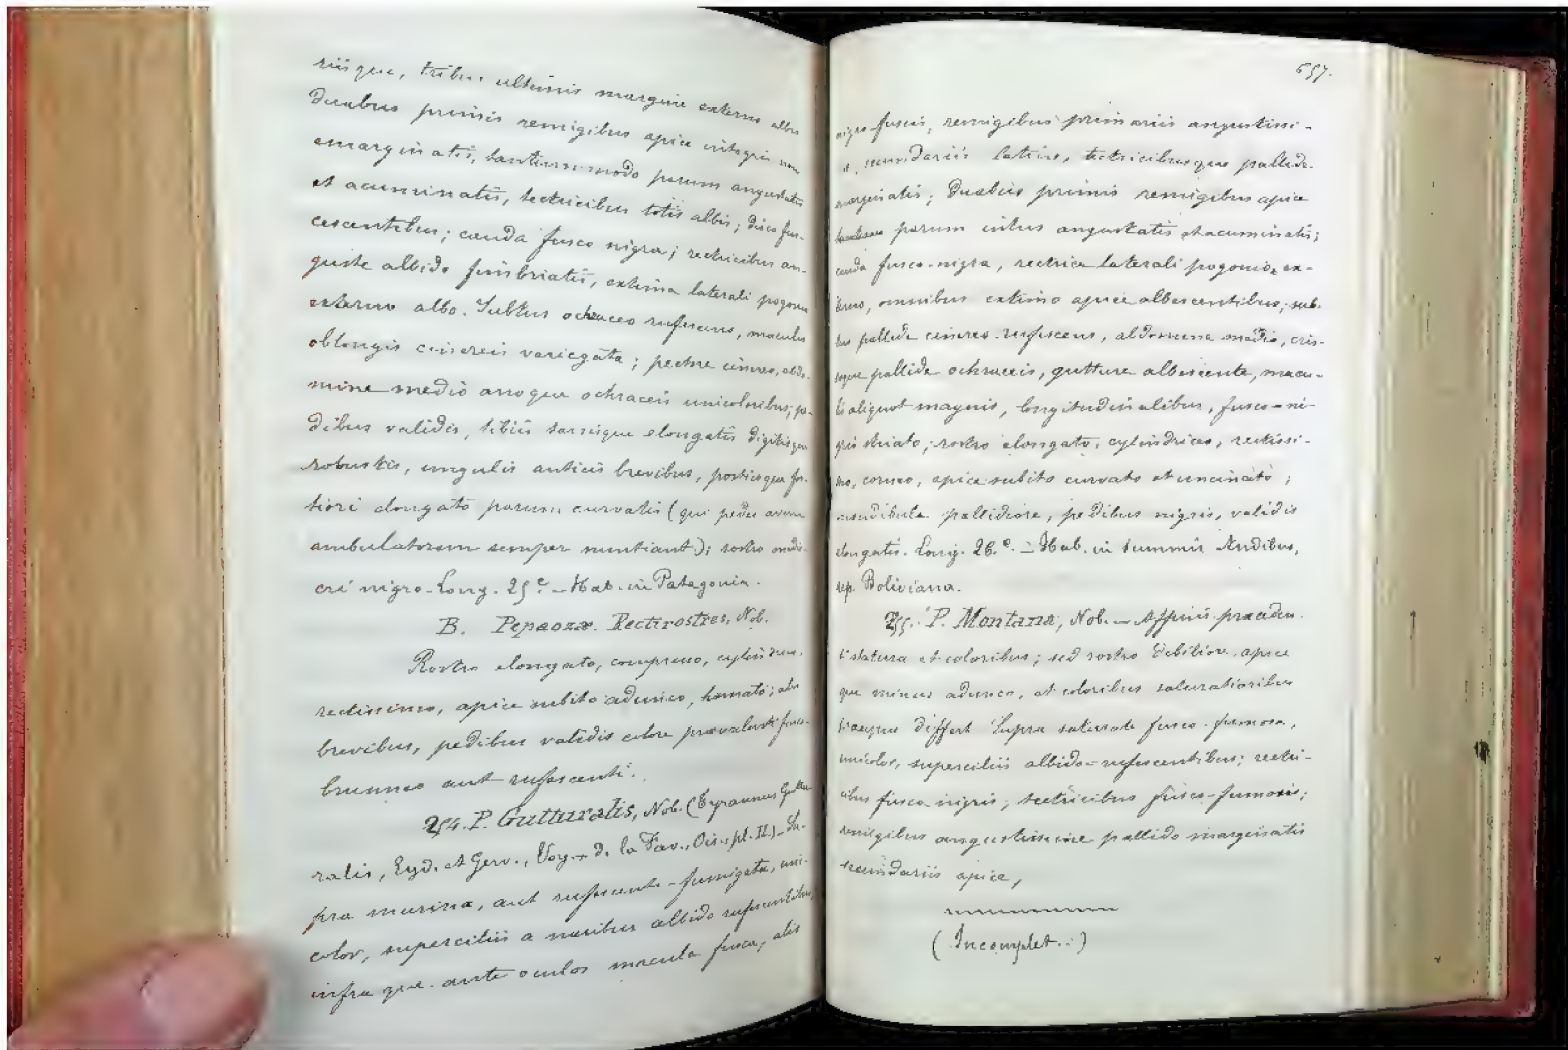 riisque, tribus ultimis margine externo albis
duabus primis remigibus apice integris non
emarginatis, tantummodo parum angustatis
et acuminatis, tectricibus totis albis; disco fus-
cescentibus; cauda fusco nigra; rectricibus an-
guste albido fimbriatis, extima laterali pogonio
externo albo. Subtus ochraceo rufescens, maculis
oblongis cinereis variegata; pectore cinereo, abdo-
mine medio anoque ochraceis unicoloribus; pe-
dibus validis, tibiis tarsisque elongatis digitisque
robustis, ungulis anticis brevibus, posticoque for-
tiori elongato parum curvatis (qui pedes avem
ambulatorem semper nuntiant); rostro medio-
cri nigro. Long. 25 c. — Hab. in Patagonia.
B. Pepaozæ. Rectirostres, Nob.
Rostro elongato, compresso, cylindrico,
rectissimo, apice subito adunco, hamato; alis
brevibus, pedibus validis colore prævalenti fusco-
brunneo aut rufescenti.
254. P. Gutturalis, Nob. (Tyrannus Guttu-
ralis, Eyd. et Gerv., Voy. de la Fav., Ois., pl. II.) — Su-
pra murina, aut rufescente-fumigata, uni-
color, superciliis a naribus albido rufescentibus,
infra que ante oculos macula fusca, alis
657.
nigro-fuscis, remigibus primariis angustissi-
secundariis latius, tectricibusque pallide
marginatis; duabus primis remigibus apice
parum intus angustatis et acuminatis;
cauda fusco-nigra, rectrice laterali pogonio ex-
terno, omnibus extimo apice albescentibus; sub-
tus pallide cinereo-rufescens, abdomine medio, cris-
soque pallide ochraceis, gutture albescente, macu-
lis aliquot magnis, longitudinalibus, fusco-ni-
gris striato; rostro elongato, cylindrico, rectissi-
mo, corneo, apice subito curvato et uncinato;
mandibula pallidiore, pedibus nigris, validis
elongatis. Long. 26. c. — Hab. in summis Andibus,
rep. Boliviana.
255. P. Montana, Nob. — Affinis præceden-
ti statura et coloribus; sed rostro debiliore, apice
que minus adunco, et coloribus saturatioribus
differt Supra saturate fusco-fumosa,
unicolor, superciliis albido-rufescentibus; rectri-
cibus fusco-nigris; tectricibus fusco-fumosis;
remigibus angustissime pallido marginatis
secundariis apice,
(Incomplet..)